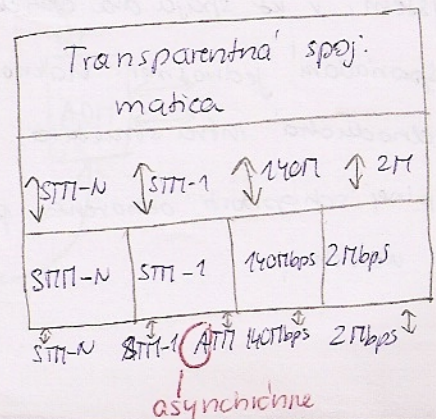 Transparentná spoj.
matica
STM-N STM-1 140M 2M
STM-N STM-1 140Mbps 2Mbps
STM-N STM-1 ATM 140Mbps 2Mbps
asynchrónne